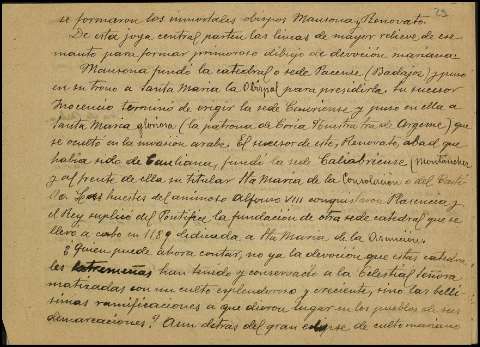 29
se formaron los inmortales obispos Mausona y Renovato.
De esta joya central parten las lineas de mayor relieve de ese
manto para formar primoroso dibujo de devoción mariana.
Mausona fundó la catedral o sede Pacense (Badajoz) y puso
en su trono a Santa Maria la Obispal para presidirla. Su sucesor
Inocencio terminó de erigir la sede Cauriense y puso en ella a
Santa Maria (la patrona de Coria Ntra Sra de Argeme) que
se ocultó en la invasion arabe. El sucesor de este, Renovato, abad que
habia sido de Cauliana, fundó la sede Caliabriense (Montanchez
y al frente de ella su titular Sta Maria de la Consolación o del Casti
llo. Las huestes del animoso Alfonso VIII conquistaron Plasencia y
el Rey suplicó del Pontifice la fundación de otra sede catedral que se
llevó a cabo en 1189 dedicada a Sta Maria de la Asunción.
¿Quien puede ahora contar, no ya la devoción que estas catedra
les extremeñas han tenido y conservado a la Celestial Señora
matizadas con un culto esplendoroso y creciente, sino las belli
simas ramificaciones a que dieron lugar en los pueblos de sus
demarcaciones? Aun detras del gran eclipse de culto mariano